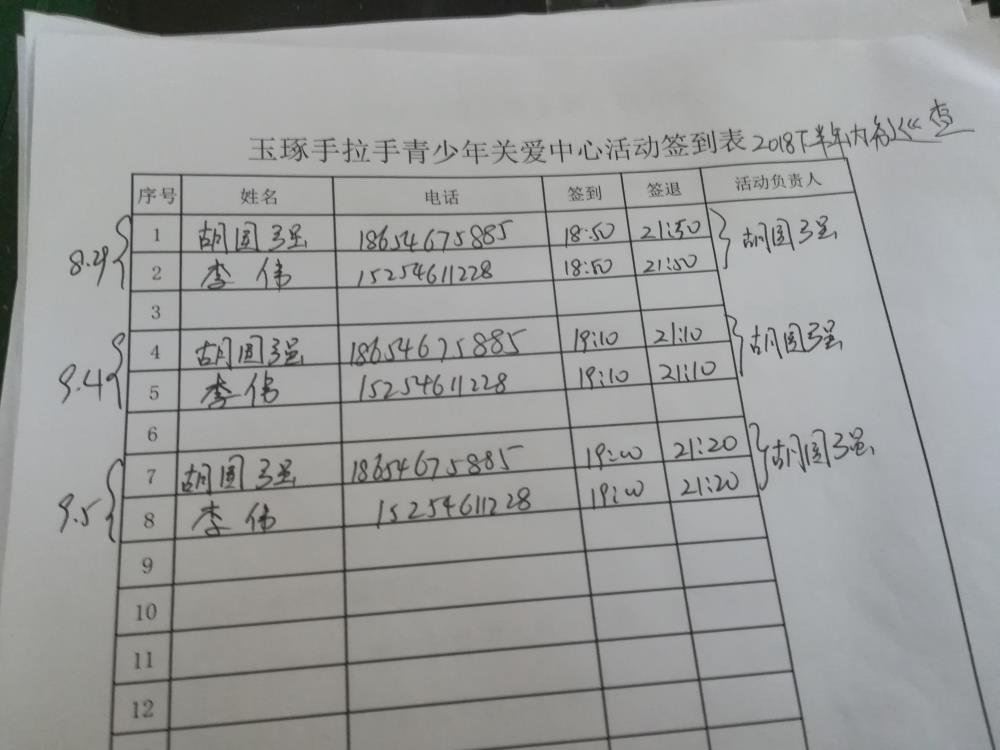 玉琢手拉手青少年关爱中心活动签到表 2018下半年内务巡查
序号 姓名 电话 签到 签退 活动负责人
8.29 1 胡国强 18654675885 18:50 21:50 胡国强
2 李伟 15254611228 18:50 21:50
3
9.4 4 胡国强 18654675885 19:10 21:10 胡国强
5 李伟 15254611228 19:10 21:10
6
9.5 7 胡国强 18654675885 19:00 21:20 胡国强
8 李伟 15254611228 19:00 21:20
9
10
11
12